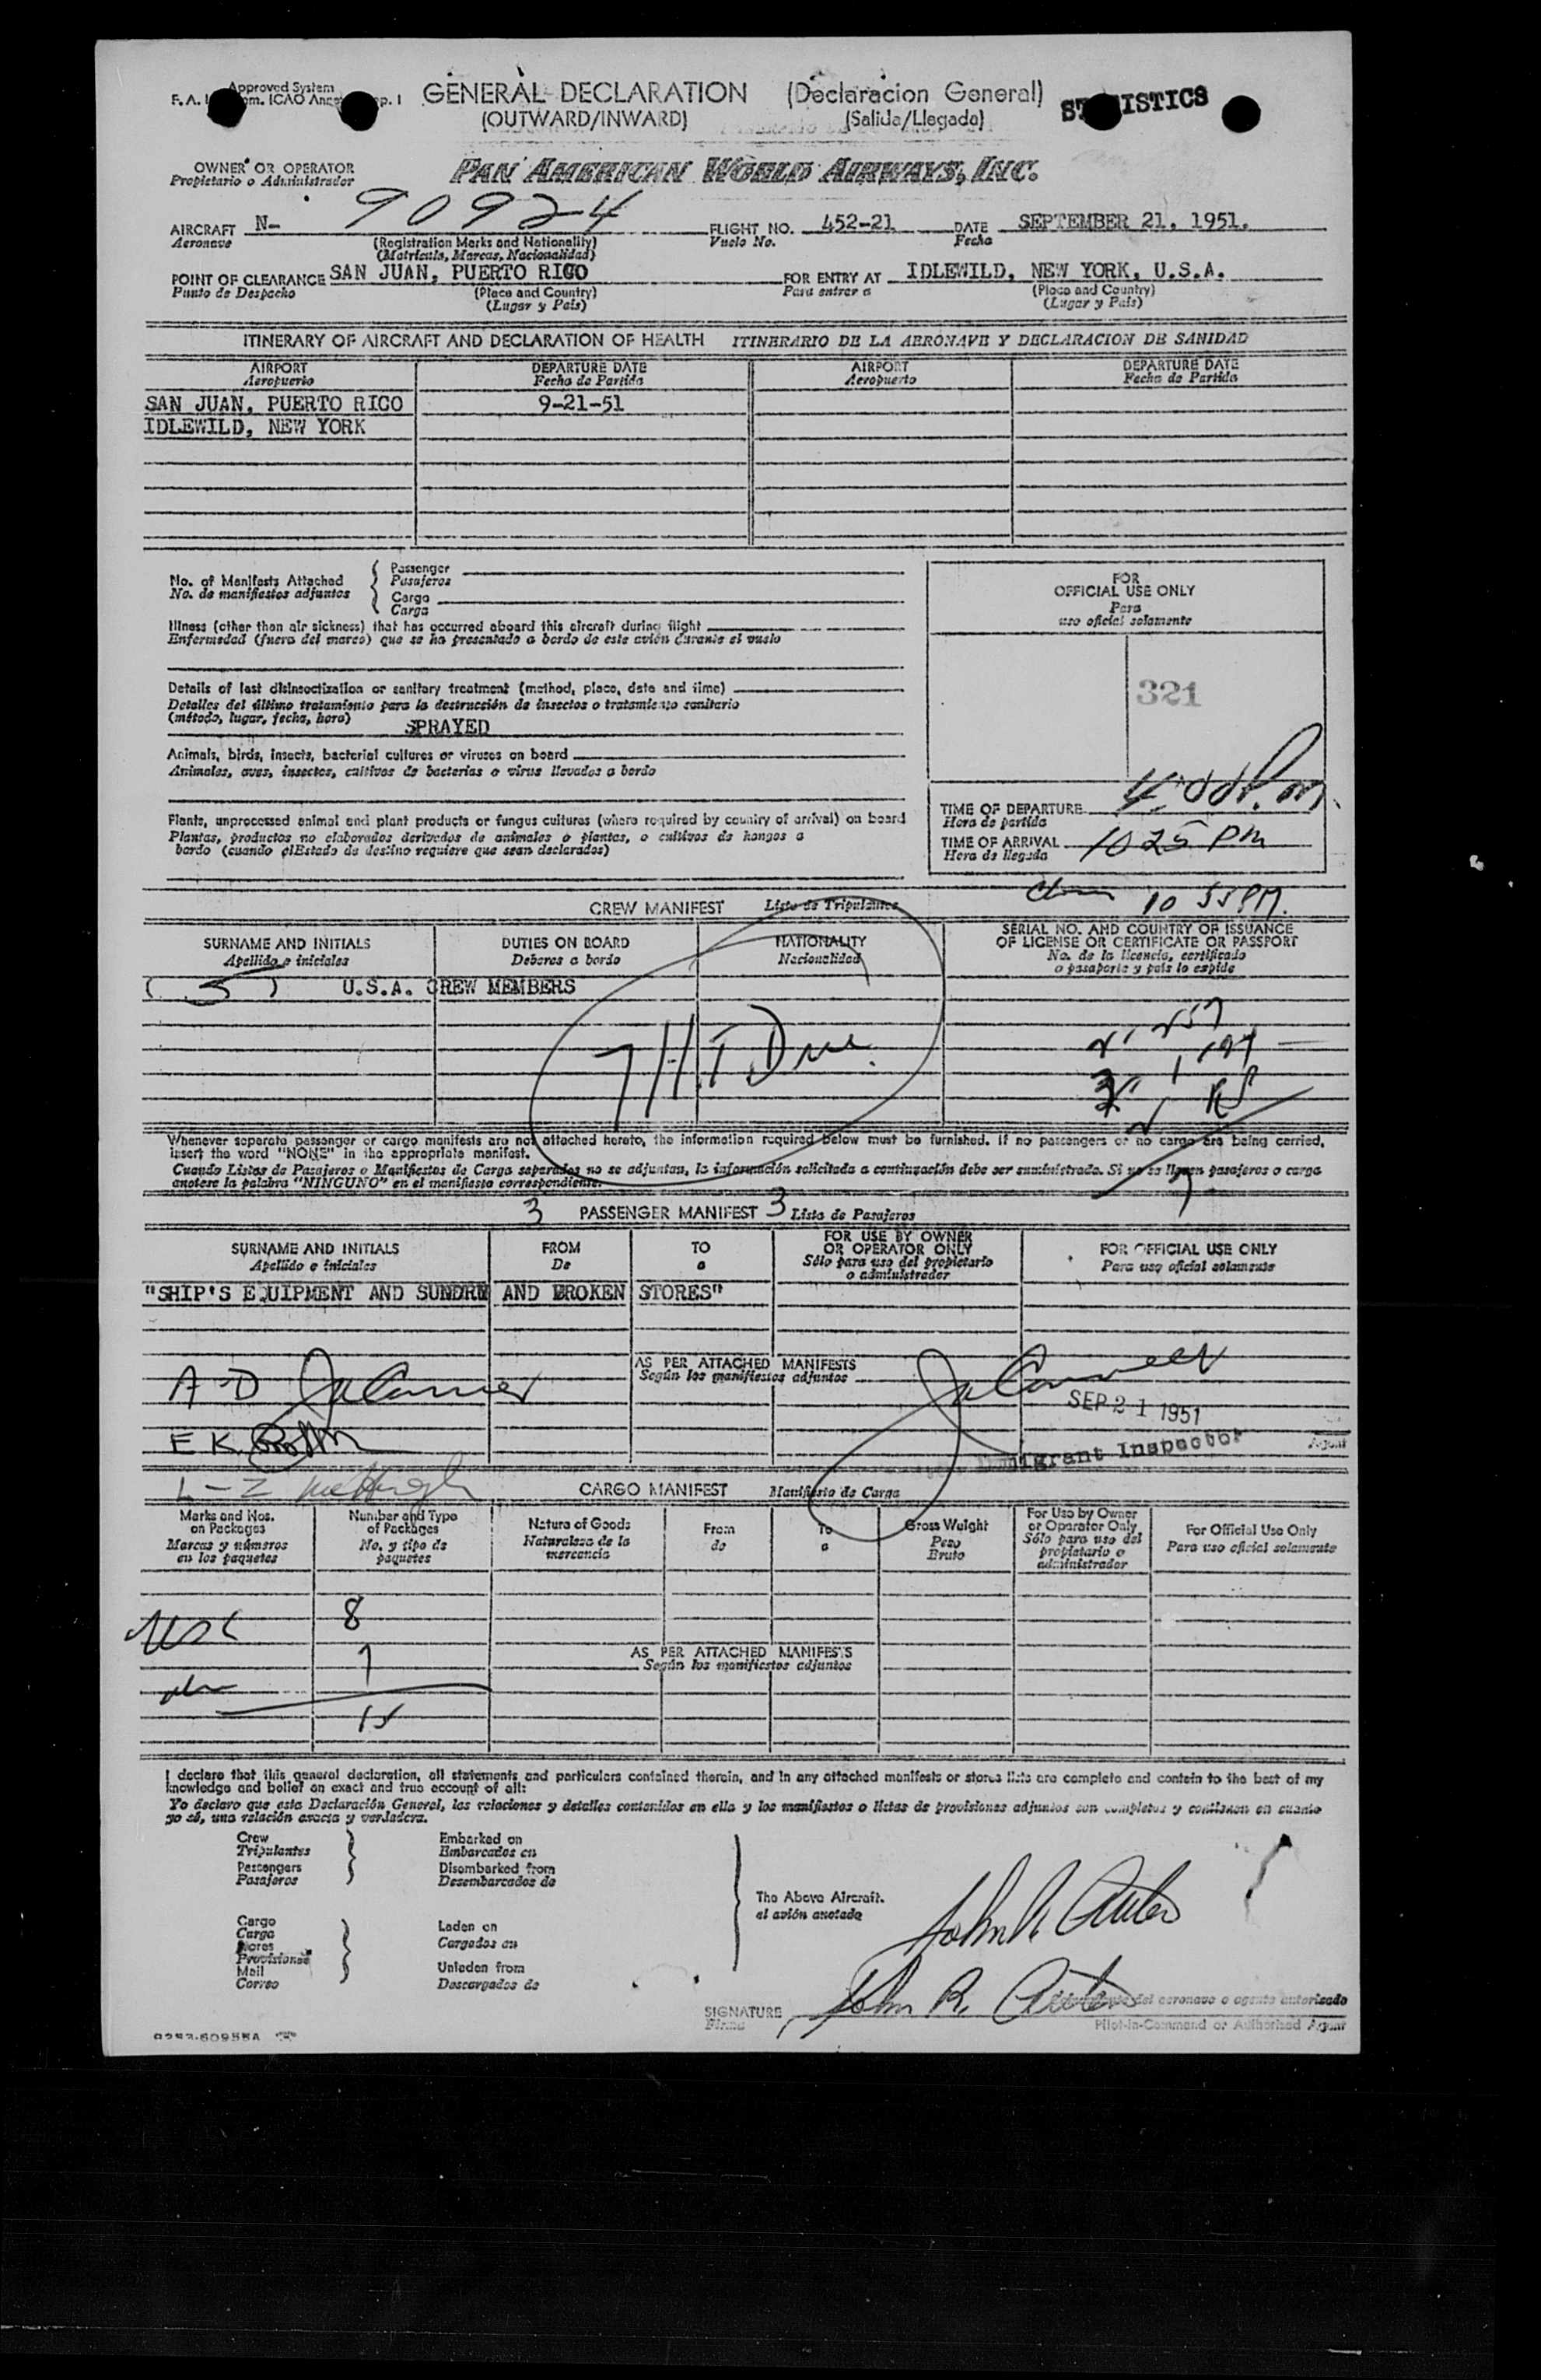 Approved System
GENERAL DECLARATION (Declaracion General)
(OUTWARD/INWARD) (Salida/Llegada)
OWNER OR OPERATOR PAN AMERICAN WORLD AIRWAYS, INC.
Propietario o Administrador
AIRCRAFT N- 90924 FLIGHT NO. 452-21 DATE SEPTEMBER 21, 1951.
Aeronave (Registration Marks and Nationality) Vuelo No. Fecha
(Matricula, Marcas, Nacionalidad)
POINT OF CLEARANCE SAN JUAN, PUERTO RICO FOR ENTRY AT IDLEWILD, NEW YORK, U.S.A.
Punto de Despacho (Place and Country) Para entrar a (Place and Country)
(Lugar y País) (Lugar y País)
ITINERARY OF AIRCRAFT AND DECLARATION OF HEALTH ITINERARIO DE LA AERONAVE Y DECLARACION DE SANIDAD
AIRPORT DEPARTURE DATE AIRPORT DEPARTURE DATE
Aeropuerto Fecha de Partida Aeropuerto Fecha de Partida
SAN JUAN, PUERTO RICO 9-21-51
IDLEWILD, NEW YORK
No. of Manifests Attached
No. de manifiestos adjuntos
Passenger
Pasajeros
Cargo
Carga
FOR
OFFICIAL USE ONLY
Para
uso oficial solamente
Illness (other than air sickness) that has occurred aboard this aircraft during flight
Enfermedad (fuera del mareo) que se ha presentado a bordo de este avión durante el vuelo
321
Details of last disinsectization or sanitary treatment (method, place, date and time)
Detalles del último tratamiento para la destrucción de insectos o tratamiento sanitario
(método, lugar, fecha, hora) SPRAYED
Animals, birds, insects, bacterial cultures or viruses on board
Animales, aves, insectos, cultivos de bacterias o virus llevados a bordo
Plants, unprocessed animal and plant products or fungus cultures (where required by country of arrival) on board
Plantas, productos no elaborados derivados de animales o plantas, o cultivos de hongos a
bordo (cuando elEstado de destino requiere que sean declarados)
TIME OF DEPARTURE
Hora de partida
TIME OF ARRIVAL 1025 PM
Hora de llegada
10 55 PM.
CREW MANIFEST Lista de Tripulantes
SURNAME AND INITIALS DUTIES ON BOARD NATIONALITY SERIAL NO. AND COUNTRY OF ISSUANCE
OF LICENSE OR CERTIFICATE OR PASSPORT
Apellido e iniciales Deberes a bordo Nacionalidad No. de la licencia, certificado
o pasaporte y país lo expide
( 5 ) U.S.A. CREW MEMBERS
Whenever separate passenger or cargo manifests are not attached hereto, the information required below must be furnished. If no passengers or no cargo are being carried,
insert the word "NONE" in the appropriate manifest.
Cuando Listas de Pasajeros o Manifiestos de Carga separados no se adjuntan, la información solicitada a continuación debe ser suministrada. Si no se llevan pasajeros o carga
anotese la palabra "NINGUNO" en el manifiesto correspondiente.
3 PASSENGER MANIFEST 3 Lista de Pasajeros
SURNAME AND INITIALS FROM TO FOR USE BY OWNER
OR OPERATOR ONLY FOR OFFICIAL USE ONLY
Apellido e iniciales De a Sólo para uso del propietario
o administrador Para uso oficial solamente
"SHIP'S EQUIPMENT AND SUNDRY AND BROKEN STORES"
AS PER ATTACHED MANIFESTS
Según los manifiestos adjuntos
A-D
SEP 21 1951
E K
Immigrant Inspector Agent
L-Z
CARGO MANIFEST Manifiesto de Carga
Marks and Nos.
on Packages Number and Type
of Packages Nature of Goods From To Gross Weight For Use by Owner
or Operator Only For Official Use Only
Marcas y números
en los paquetes No. y tipo de
paquetes Naturaleza de la
mercancía de a Peso
Bruto Sólo para uso del
propietario o
administrador Para uso oficial solamente
8
7
AS PER ATTACHED MANIFESTS
Según los manifiestos adjuntos
15
I declare that this general declaration, all statements and particulars contained therein, and in any attached manifests or stores lists are complete and contain to the best of my
knowledge and belief an exact and true account of all:
Yo declaro que esta Declaración General, las relaciones y detalles contenidos en ella y los manifiestos o listas de provisiones adjuntos son completos y contienen en cuanto
yo sé, una relación exacta y verdadera.
Crew
Tripulantes
Passengers
Pasajeros
Embarked on
Embarcados en
Disembarked from
Desembarcados de
The Above Aircraft.
el avión anotado
Cargo
Carga
Stores
Provisiones
Mail
Correo
Laden on
Cargados en
Unladen from
Descargados de
SIGNATURE John R.
Firma del aeronave o agente autorisado
Pilot-in-Command or Authorized Agent